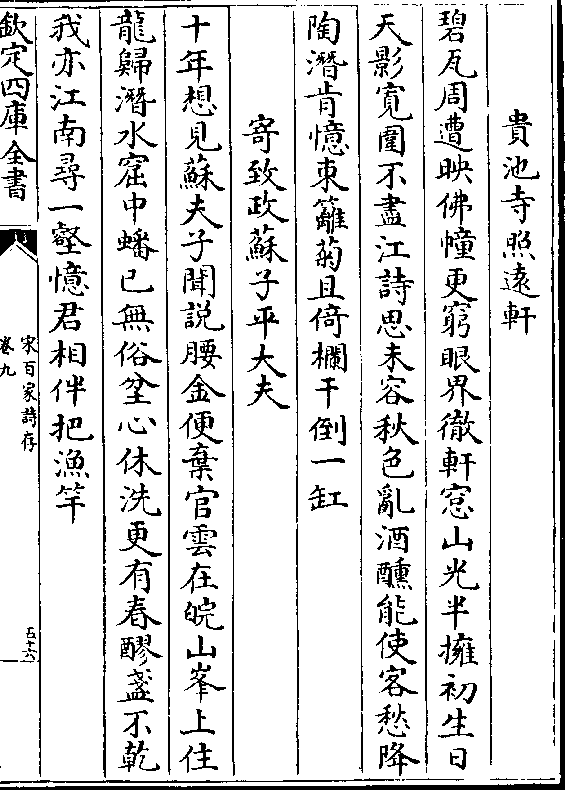 貴池寺照遠軒
碧瓦周遭映佛幢更窮眼界徹軒窓山光半擁初生日
天影寛圍不盡江詩思未容秋色亂酒醺能使客愁降
陶潛肯憶東籬菊且倚欄干倒一缸
寄致政蘇子平大夫
十年想見蘇夫子聞説腰金便棄官雲在皖山峯上住
龍歸潛水窟中蟠已無俗坌心休洗更有春醪盞不乾
我亦江南尋一壑憶君相伴把漁竿
欽定四庫全書
宋百家詩存
卷九
五十六